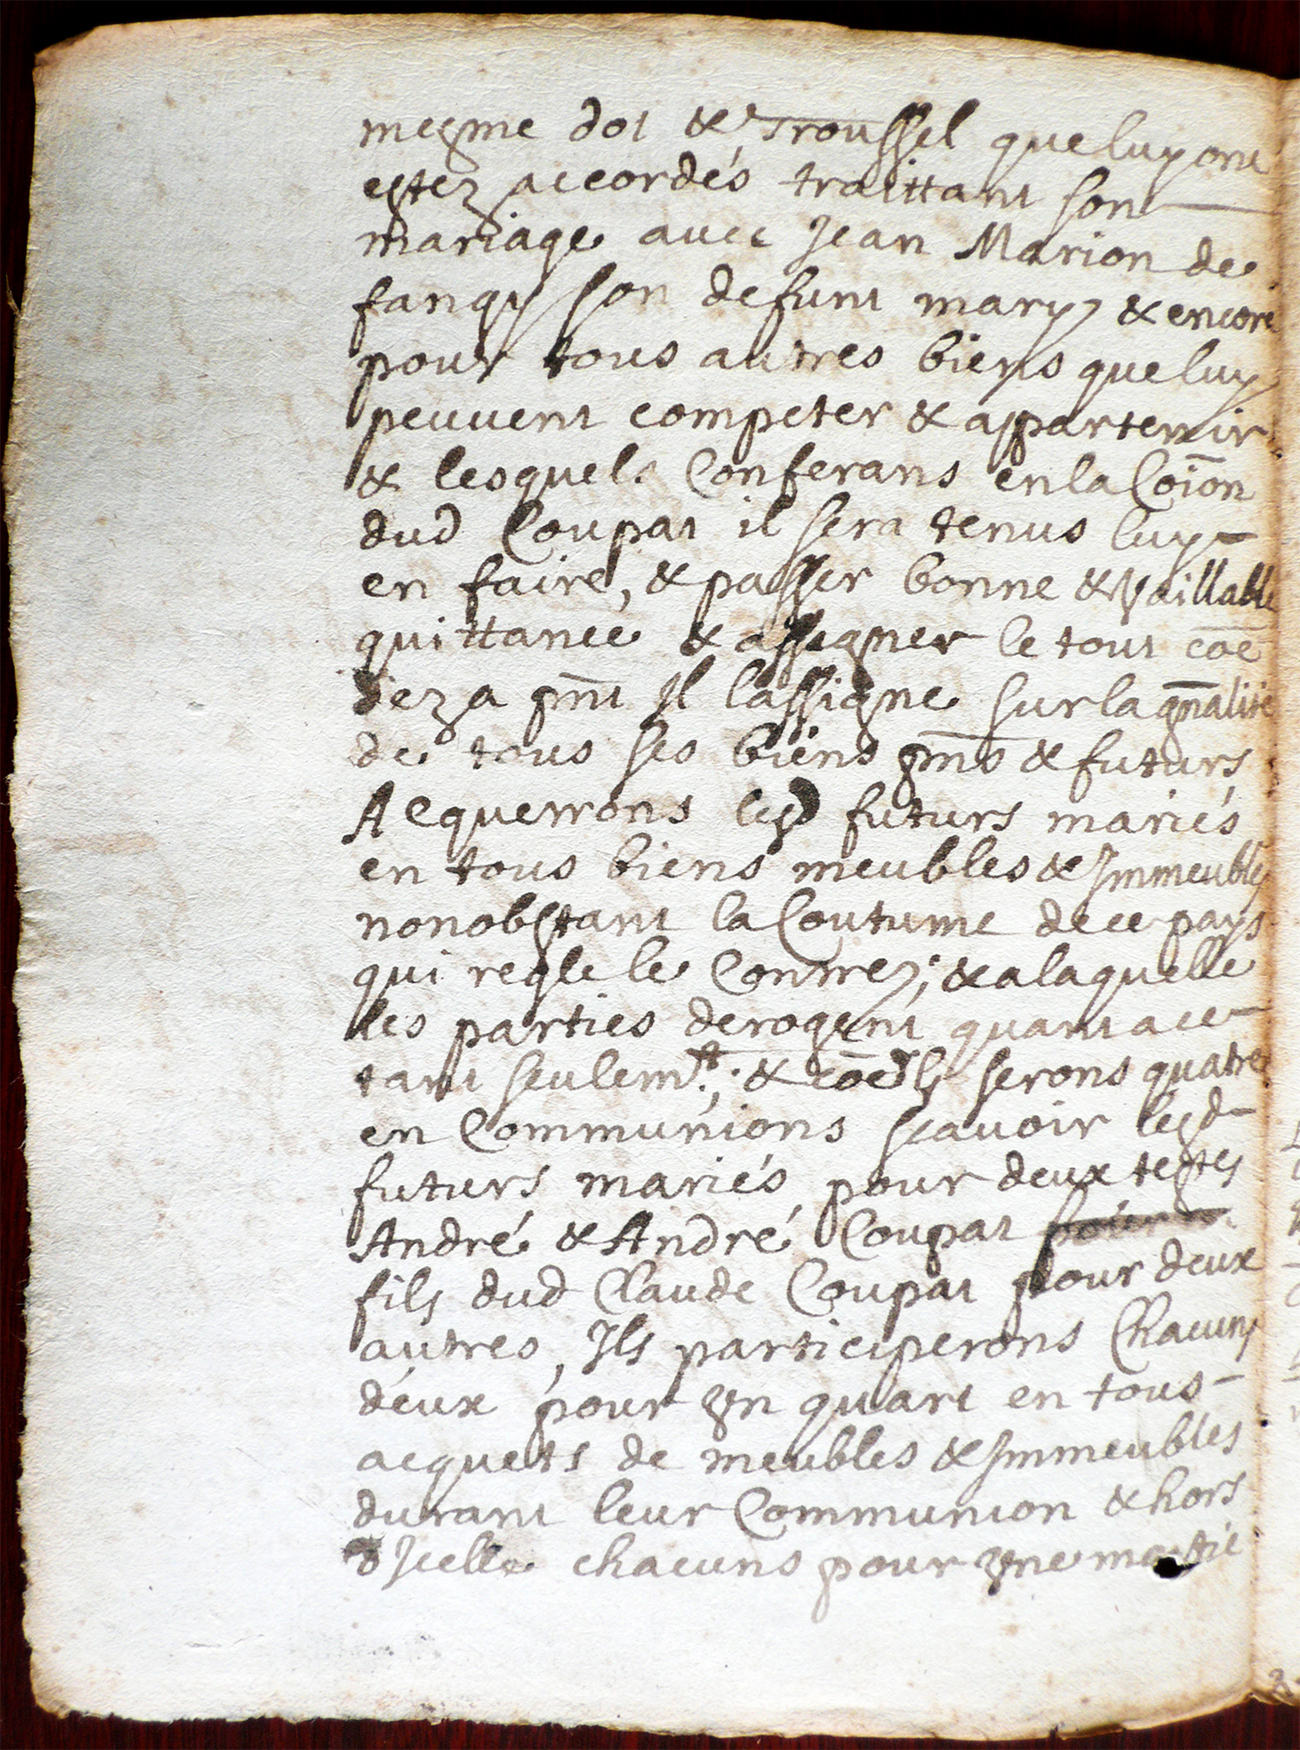 mesme dot & Troussel que luy ont
estez accordés traittant son
mariage avec Jean Marion de
fanqy son defunt mary & encore
pour tous autres biens que luy
peuvent competer & appartenir
& lesquels Conferans en la Coīon
dud Coupat il sera tenus luy
en faire, & passer bonne & Vaillable
quittance & assigner le tout cōe
dez a pn̄t Il lassigne sur la gn̄alité
de tous ses biens pn̄s & futurs
Acquerrons lesd futurs mariés
en tous biens meubles & Immeubles
nonobstant la Coutume de ce pays
qui regle le Contrez; & a laquelle
les parties derogent quant a ce
tant seulemt; & cōe Ils serons quatre
en Communions scavoir lesd
futurs mariés pour deux testes
André & André Coupat
fils dud Claude Coupat pour deux
autres, Ils participerons Chacuns
d'eux pour Vn quart en tous
acquets de meubles & Immeubles
durant leur Communion & hors
d Icelle chacuns pour Vne moitié